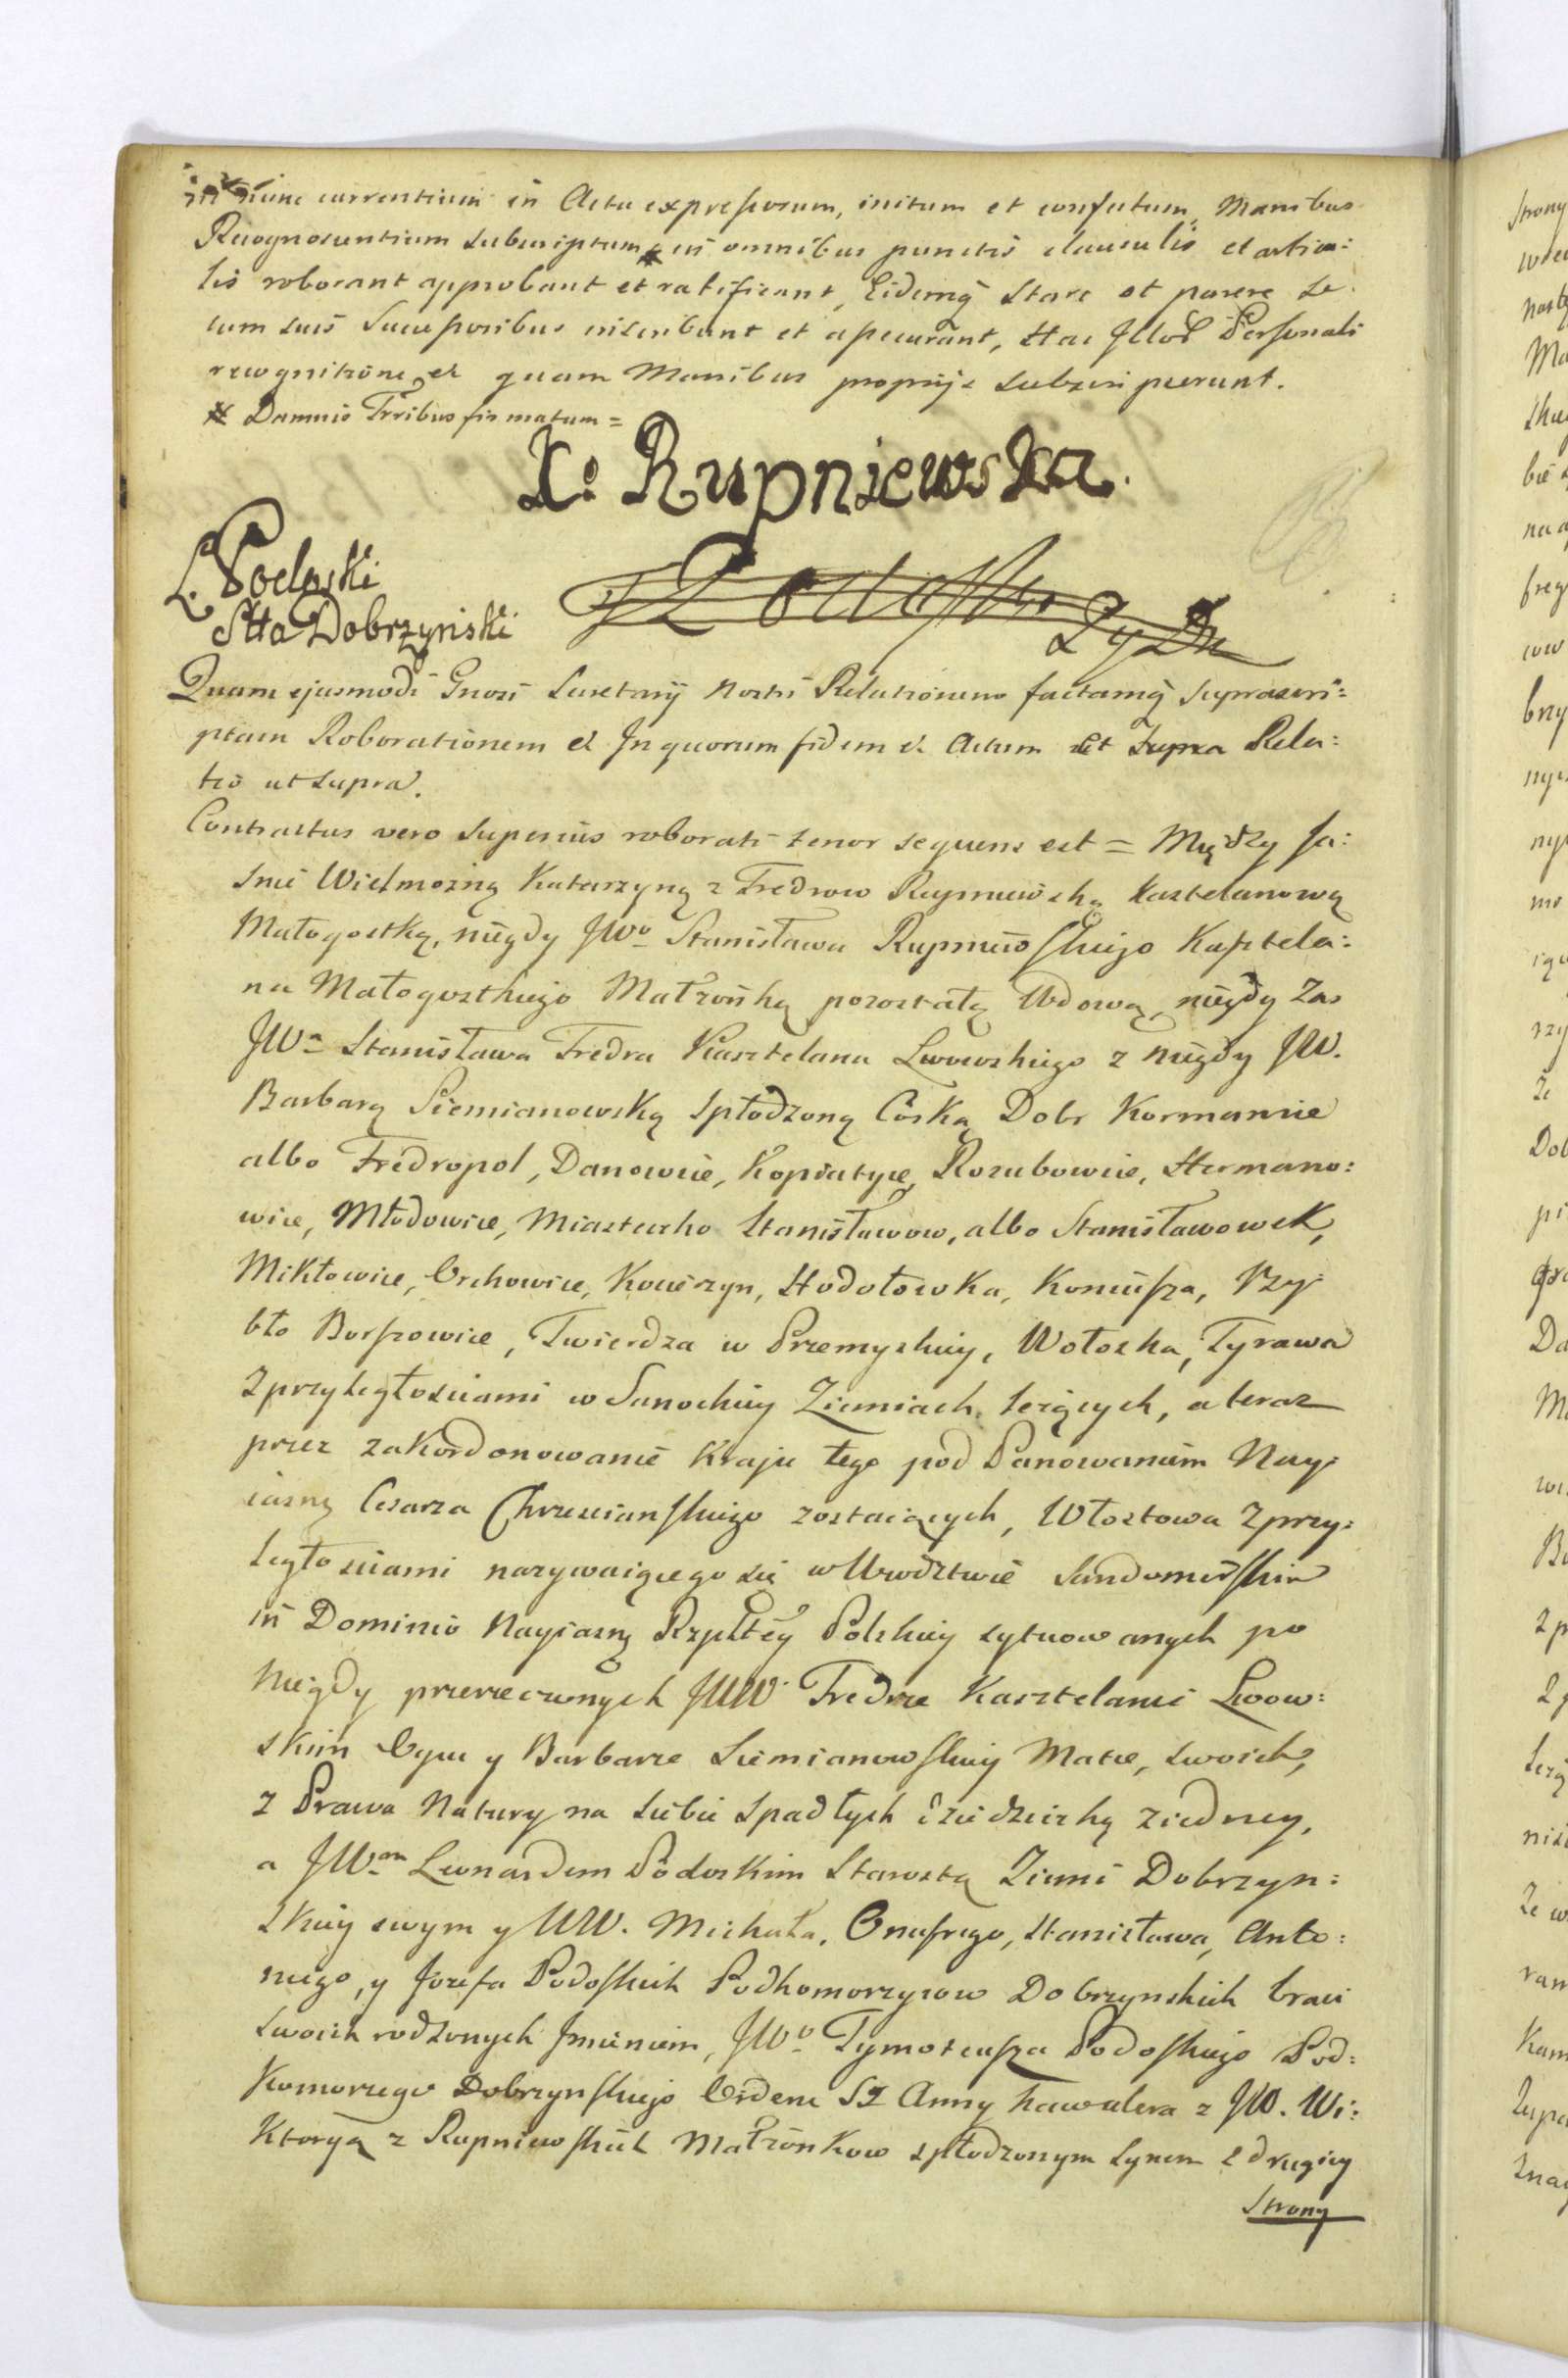 nunc currentium in Actu expressorum, initum et confectum, Manibus
Recognoscentium subscriptum * in omnibus punctis clausulis et articu:
lis roborant approbant et ratificant, Eidemq̃ stare et parere se
cum suis Successoribus inscribunt et assecurant, Hac Personali
recognitione et quam Manibus proprijs subscripserunt.
* Damnis Trribus firmatum =
K: Rupniewska.
L. Podoski
Stta Dobrzyński
Quam ejusmodi Gnosi Secretarij Nostri Relationem factamq̃ suprascri:
ptam Roborationem et In quorum fidem et Actum ut supra Rela:
tio ut supra.
Contractus vero superius roborati tenor sequens est = Między Ja:
snie Wielmożną Katarzyną z Fredrow Rupniewską Kasztelanową
Małogostką, niegdy JWo Stanisława Rupniewskiego Kasztela:
na Małogoszthiego Małżonką pozostałą Wdową, niegdy zas
JWa Stanisława Fredra Kasztelana Lwowskiego z niegdy JW.
Barbarą Siemianowską spłodzoną Corką Dobr Kormanice
albo Fredropol, Danowice, Kopiatyce, Rozubowice, Hermano:
wice, Młodowice, Miasteczko Stanisławow, albo Stanisławowek,
Mikłowice, Orchowice, Konierzyn, Hodołowka, Koniusza, Przy:
bło Borszowice, Twierdza w Przemyskiey, Wołoska, Tyrawa
z przyległosciami w Sanockiey Ziemiach leżących, a teraz
przez zakordonowanie Kraju tego pod Panowaniem Nay:
iasnę Cesarza Chrzescianskiego zostaiących, Włostowa z przy:
ległosciami nazywaiącego się w Wwodztwie Sandomirskim
in Dominio Nayiasnę Rzpltey Polskiey sytuowanych po
Niegdy przerzeczonych JWW Fredrze Kasztelanie Lwow:
skim Oycu y Barbarze Siemianowskiey Matce, swoich,
z Prawa Natury na siebie spadłych dziedziczką z iedney,
a JWem Leonardem Podoskim Starostą Ziemi Dobrzyn:
skiey swym y WW. Michała, Onufrego, Stanisława, Anto:
niego, y Jozefa Podoskich Podkomorzycow Dobrzynskich braci
swoich rodzonych Jmieniem, JWo Tymoteusza Podoskiego Pod:
Komorzego Dobrzynskiego Orderu S. Anny Kawalera z JW. Wi:
Ktoryą z Rupniewskich Małżonkow spłodzonym synem z drugiey
Strony